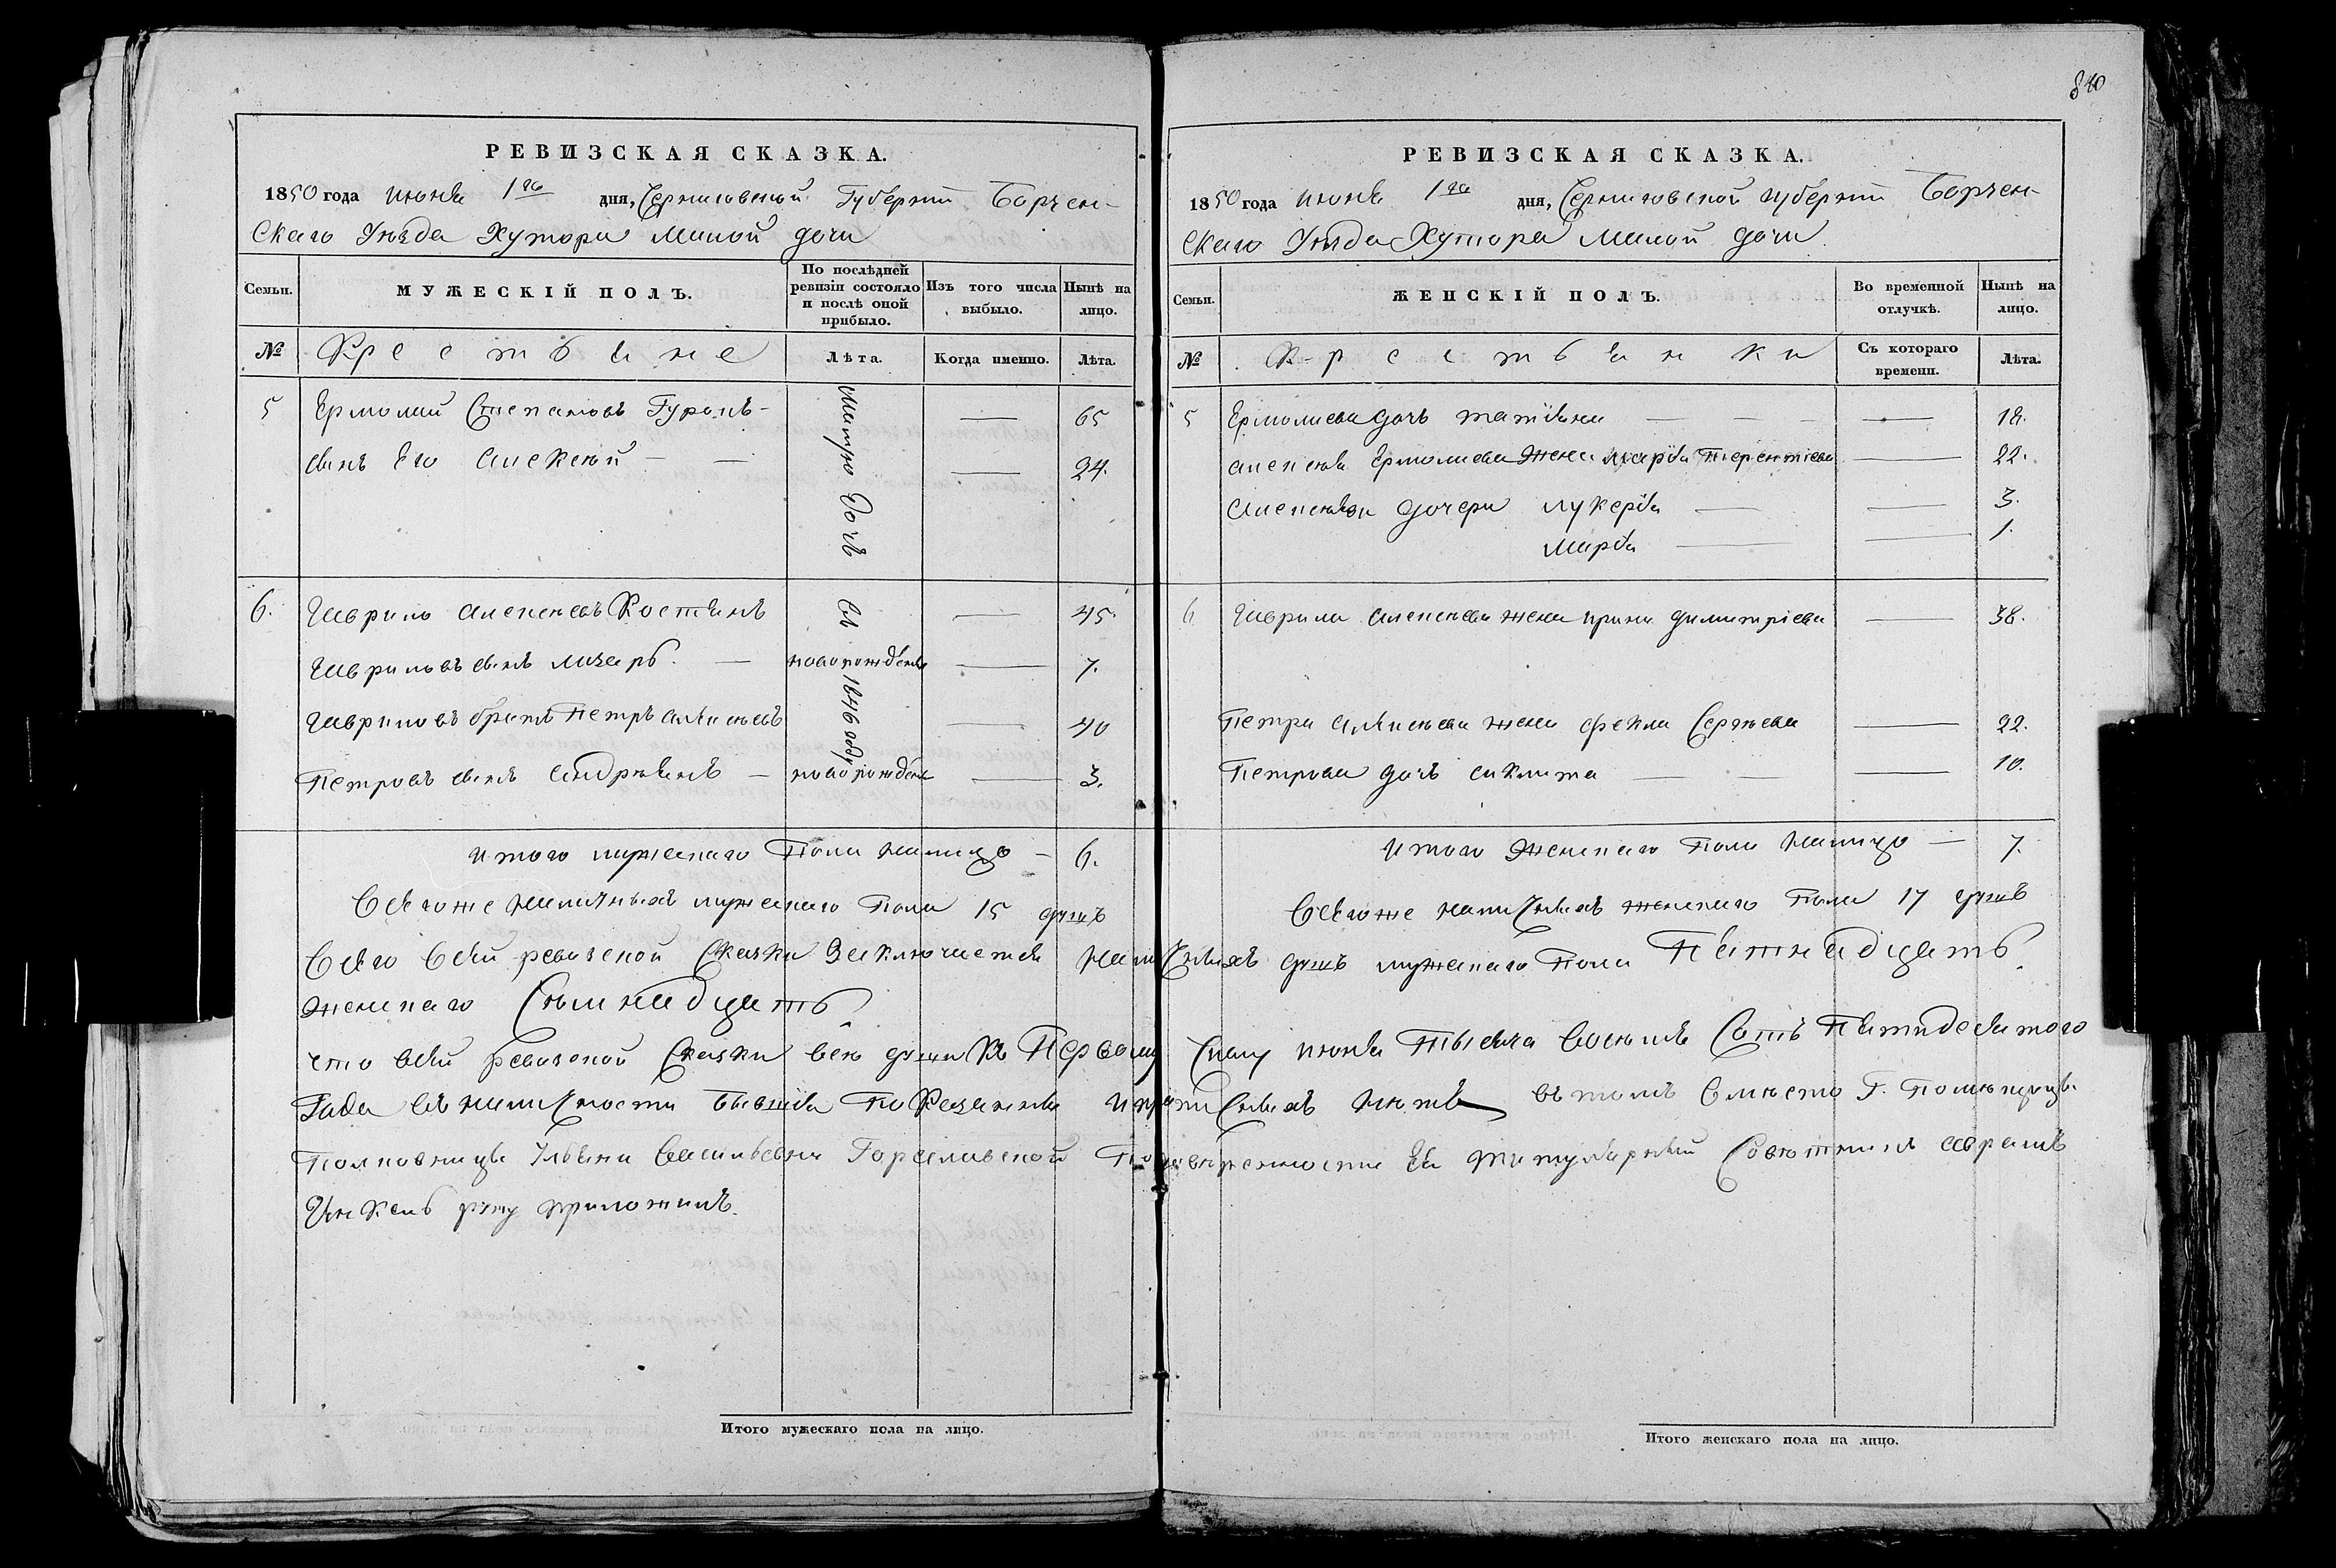 РЕВИЗСКАЯ СКАЗКА.
1850 года июня 1го дня, Черниговской Губернiи Борзен-
скаго Уезда Хутора Малой дочи
Семьи. МУЖЕСКІЙ ПОЛЪ. По послѣдней ревизіи состояло и послѣ оной прибыло. Изъ того числа выбыло. Нынѣ на лицо.
№ Крестьяне Лѣта. Когда именно. Лѣта.
5 Ермолай Степановъ 65
сынъ Его Алексей 24.
6. Гаврило Алексеевъ Костянъ 45.
Гавриловъ сынъ новорожденъ 7.
Гавриловъ братъ Петръ Алексеевъ 40
Петровъ сынъ новорожденъ 3.
Малую Дочь
въ 1846 году
итого мужескаго Пола налицо 6.
Всегоже наличныхъ мужескаго Пола 15 душъ
840
РЕВИЗСКАЯ СКАЗКА.
1850 года июня 1го дня, Черниговской губернiи Борзен-
скаго Уезда Хутора Малой дочи.
Семьи. ЖЕНСКІЙ ПОЛЪ. Во временной отлучкѣ. Нынѣ на лицо.
№ Крестьянки Съ котораго времени. Лѣта.
5 Ермолаева дочь татiяна 18.
алексея Ермолаева жена марья Терентiева 22.
Алексеевы дочери лукерья 3.
марья 1.
6 Гаврила алексеева жена ирина димитрiева 38.
Петра алексеева жена фекла Сергеева 22.
Петрова дочь 10.
итого женскаго пола налицо 7.
Всегоже наличныхъ женскаго пола 17 душъ
Всего всей ревизской Сказки Заключается наличныхъ душъ мужескаго пола Пятнадцать
женскаго Семнадцать
что всей ревизской Сказки все души къ Первому числу июня тысяча восемь Сотъ Пятидесятого
Года въ наличности нетъ въ томъ вместо Г. Помещицы
Полковницы Ульяны Васильевны По доверенности Ея Титулярный Советникъ
руку приложилъ.
Итого мужескаго пола на лицо.
Итого женскаго пола на лицо.